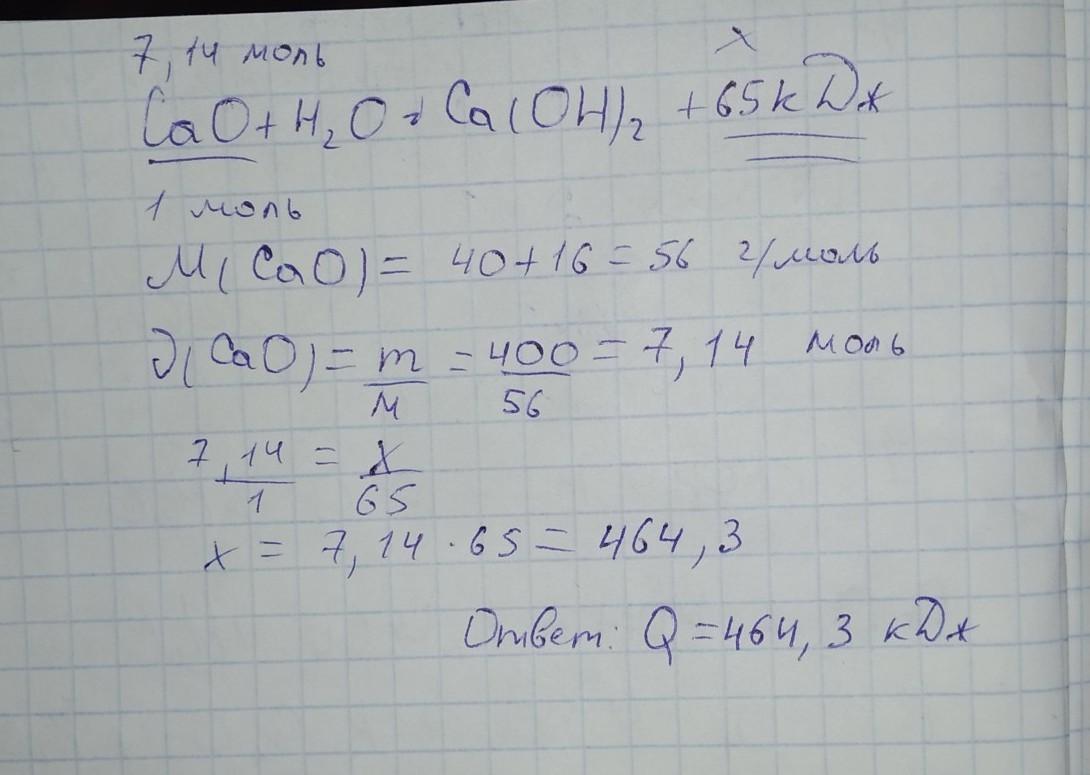 7,14 моль
x
CaO + H₂O = Ca(OH)₂ + 65 кДж
1 моль
M(CaO) = 40+16 = 56 г/моль
ν(CaO) = m/M = 400/56 = 7,14 моль
7,14/1 = x/65
x = 7,14 · 65 = 464,3
Ответ: Q = 464,3 кДж